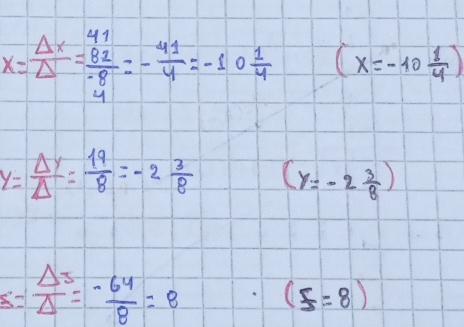 x = Δx/Δ = 41 82/-8 4 = - 41/4 = -10 1/4 (x = -10 1/4)
y = Δy/Δ = 19/8 = -2 3/8 (y = -2 3/8)
5 = Δ5/Δ = -64/8 = 8 (5 = 8)